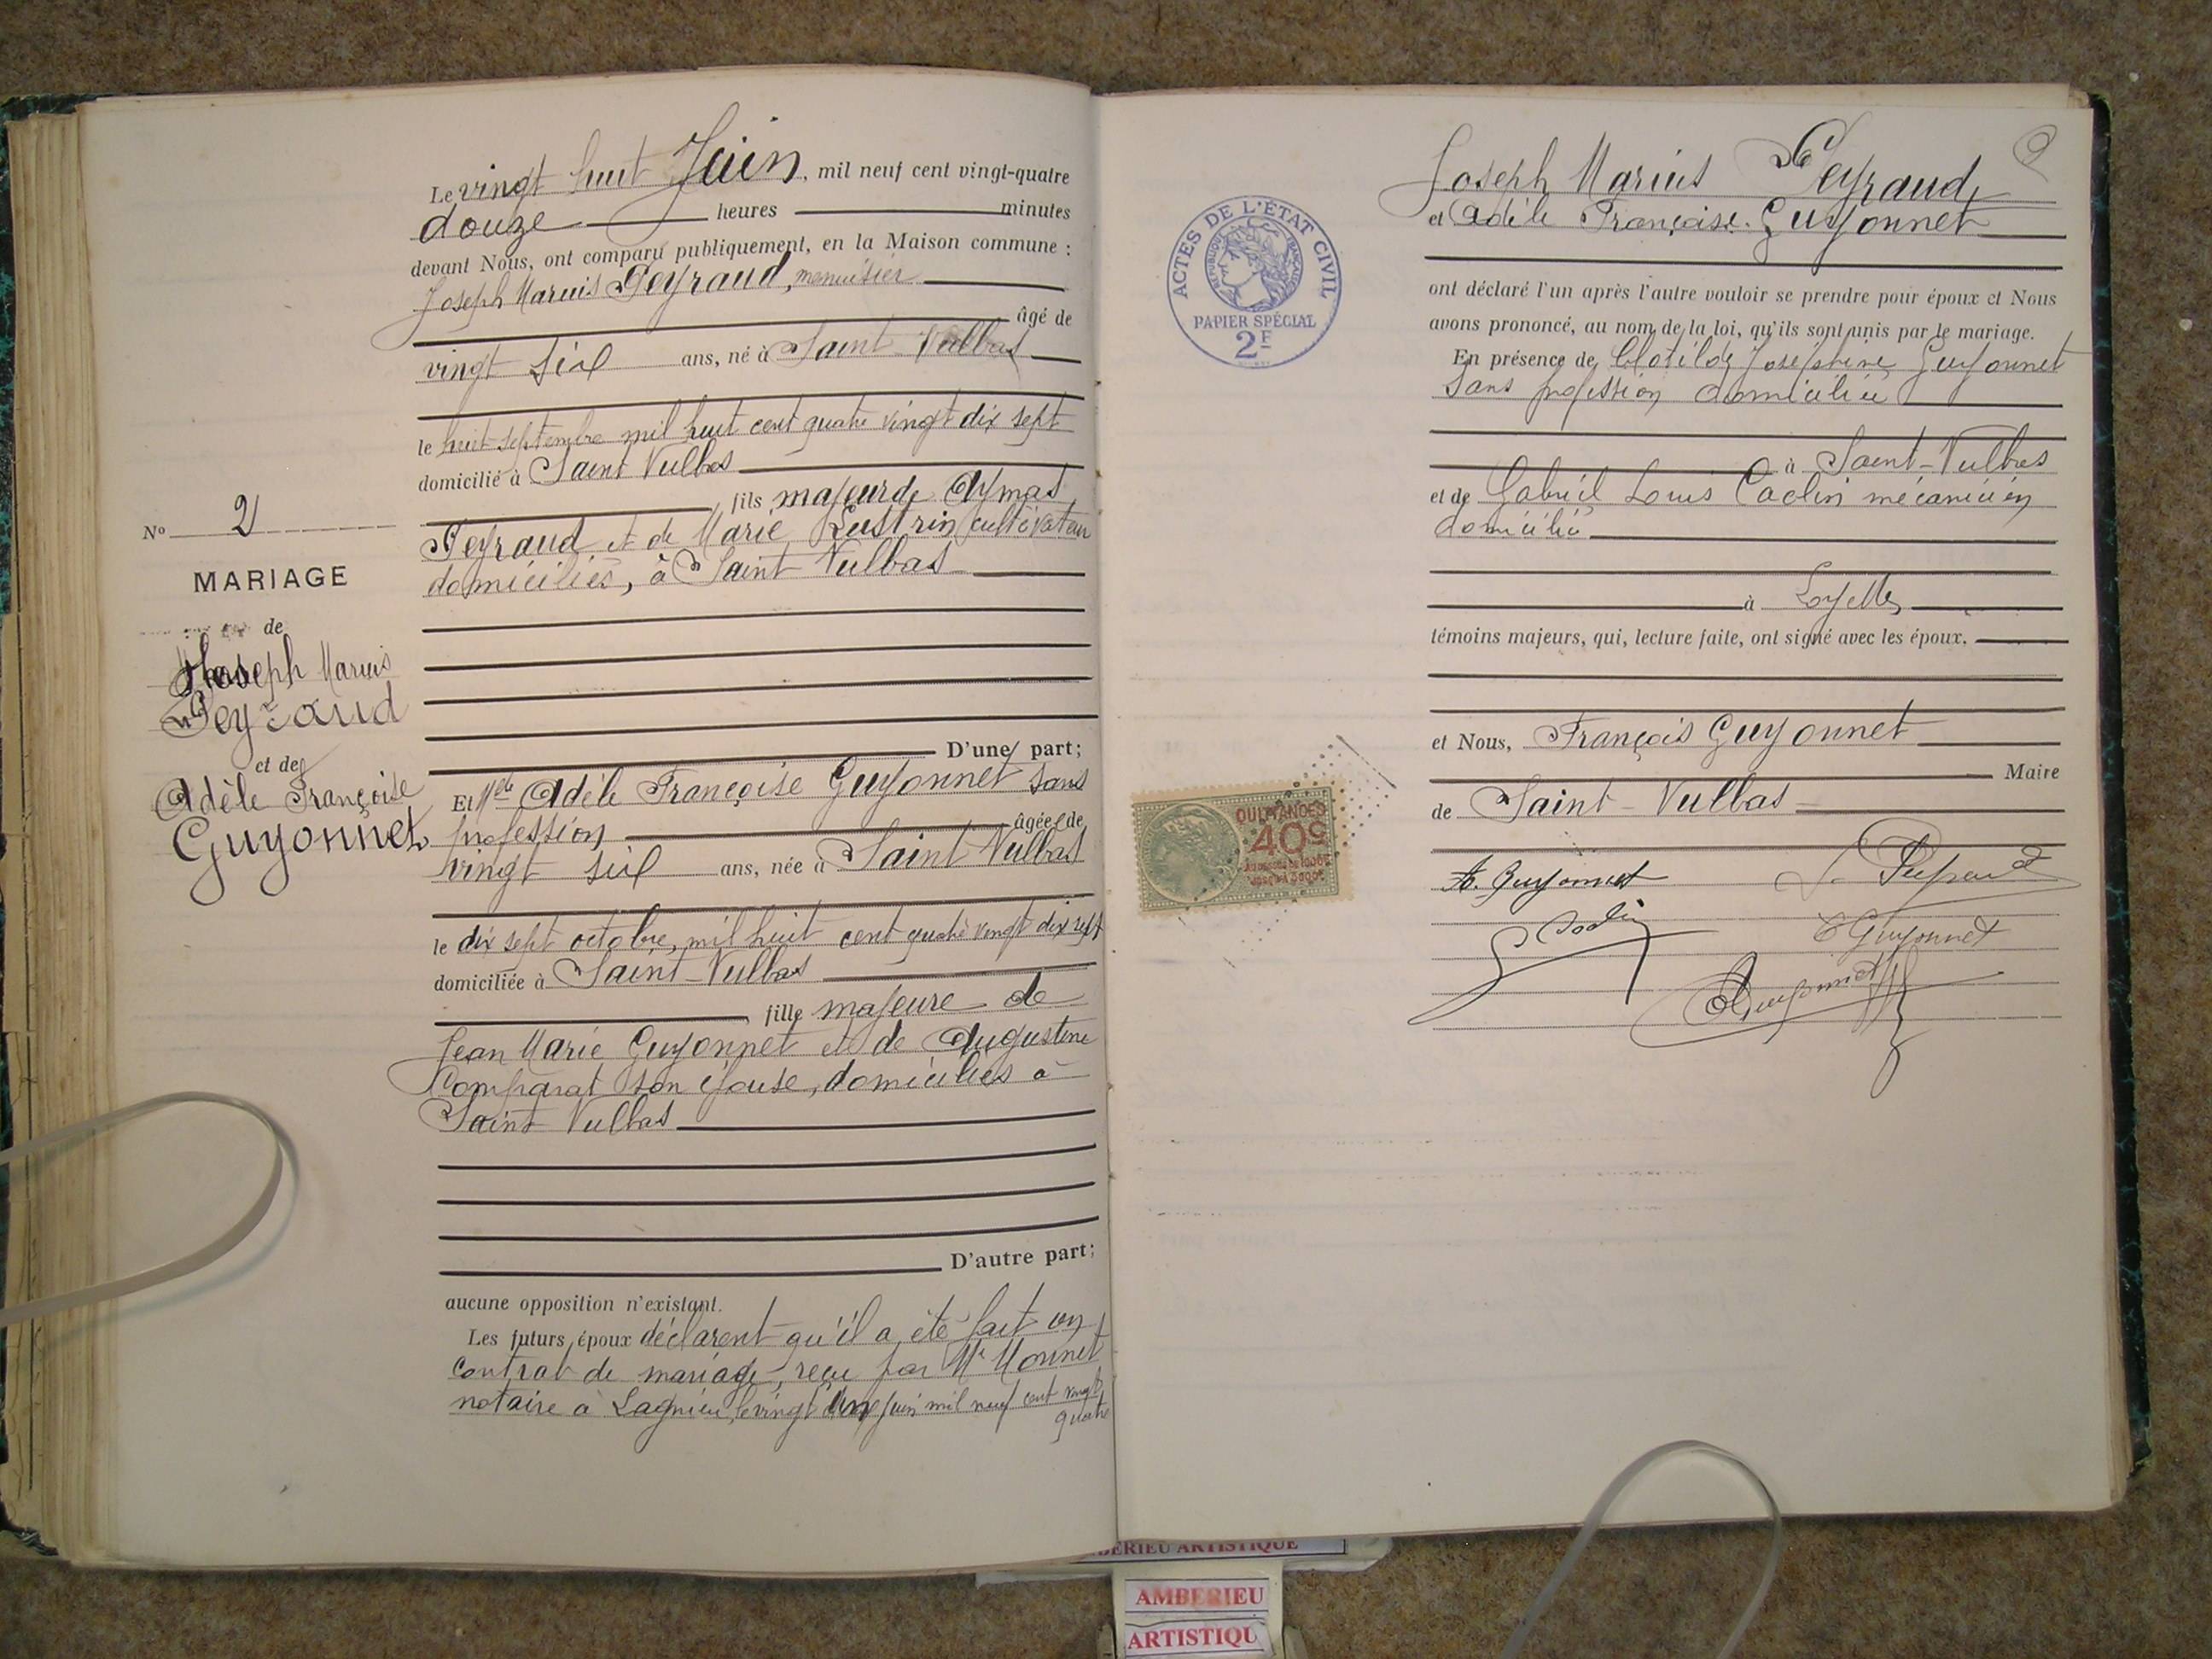 Le vingt huit Juin, mil neuf cent vingt-quatre
douze heures minutes
devant Nous, ont comparu publiquement, en la Maison commune :
Joseph Marius Peyraud, menuisier
âgé de
vingt six ans, né à Saint Vulbas
le huit septembre mil huit cent quatre vingt dix sept
domicilié à Saint Vulbas
fils majeur de Aymas
Peyraud et de Marie Lustrin cultivateurs
domiciliés, à Saint Vulbas
D'une part;
Et Melle Adèle Françoise Guyonnet sans
profession âgée de
vingt six ans, née à Saint Vulbas
le dix sept octobre, mil huit cent quatre vingt dix sept
domiciliée à Saint-Vulbas
fille majeure de
Jean Marie Guyonnet et de Augustine
Comparat son épouse, domiciliés à
Saint Vulbas
D'autre part;
aucune opposition n'existant.
Les futurs époux déclarent qu'il a été fait un
contrat de mariage, reçu par Me Monnet
notaire à Lagnieu, le vingt juin mil neuf cent vingt
quatre
No 2
MARIAGE
de
Joseph Marius
Peyraud
et de
Adèle Françoise
Guyonnet
Joseph Marius Peyraud
et Adèle Françoise Guyonnet
ont déclaré l'un après l'autre vouloir se prendre pour époux et Nous
avons prononcé, au nom de la loi, qu'ils sont unis par le mariage.
En présence de Clotilde Joséphine Guyonnet
sans profession domiciliée
à Saint-Vulbas
et de Gabriel Louis Caclin mécanicien
domicilié
à Loyettes
témoins majeurs, qui, lecture faite, ont signé avec les époux.
et Nous, François Guyonnet
Maire
de Saint-Vulbas
A. Guyonnet
C Guyonnet
Guyonnet
ACTES DE L'ÉTAT CIVIL
RÉPUBLIQUE FRANÇAISE
PAPIER SPÉCIAL
2F
40c
AMBERIEU ARTISTIQUE
AMBERIEU
ARTISTIQU